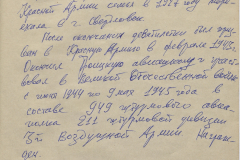 Красной Армии семья в 1927 году
ехала в г. Свердловск.
После окончания десятилетки был приз-
ван в Красную Армию в феврале 1943г.
Окончил Троицкую авиашколу и участ-
вовал в Великой Отечественной войне
с июня 1944 по 9 мая 1945 года в
составе 949 штурмового авиа-
полка 211 штурмовой дивизии
3й Воздушной Армии. Награж-
ден.